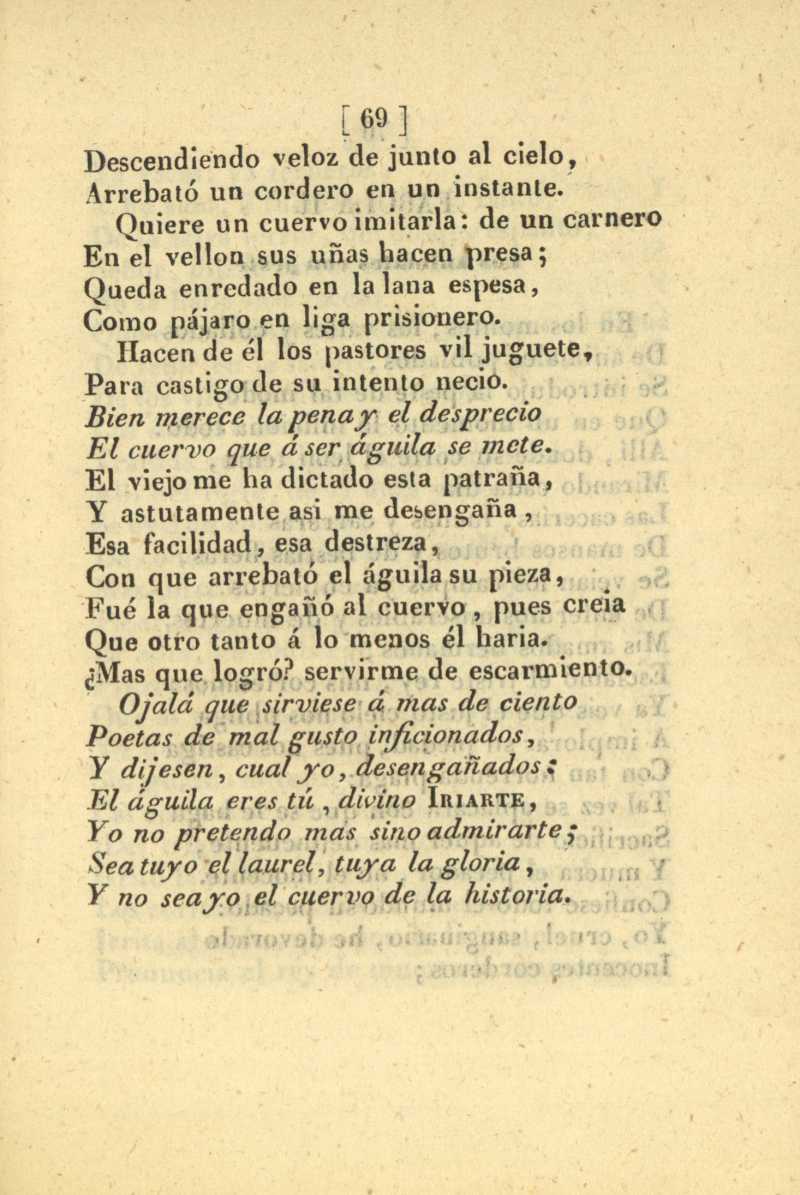 [ 69 ]
Descendiendo veloz de junto al cielo,
Arrebató un cordero en un instante.
Quiere un cuervo imitarla: de un carnero
En el vellon sus uñas hacen presa;
Queda enredado en la lana espesa,
Como pájaro en liga prisionero.
Hacen de él los pastores vil juguete,
Para castigo de su intento necio.
Bien merece la pena y el desprecio
El cuervo que á ser águila se mete.
El viejo me ha dictado esta patraña,
Y astutamente asi me desengaña,
Esa facilidad, esa destreza,
Con que arrebató el águila su pieza,
Fué la que engañó al cuervo, pues creia
Que otro tanto á lo menos él haria.
¿Mas que logró? servirme de escarmiento.
Ojalá que sirviese á mas de ciento
Poetas de mal gusto inficionados,
Y dijesen, cual yo, desengañados:
El águila eres tú, divino IRIARTE,
Yo no pretendo mas sino admirarte;
Sea tuyo el laurel, tuya la gloria,
Y no sea yo el cuervo de la historia.